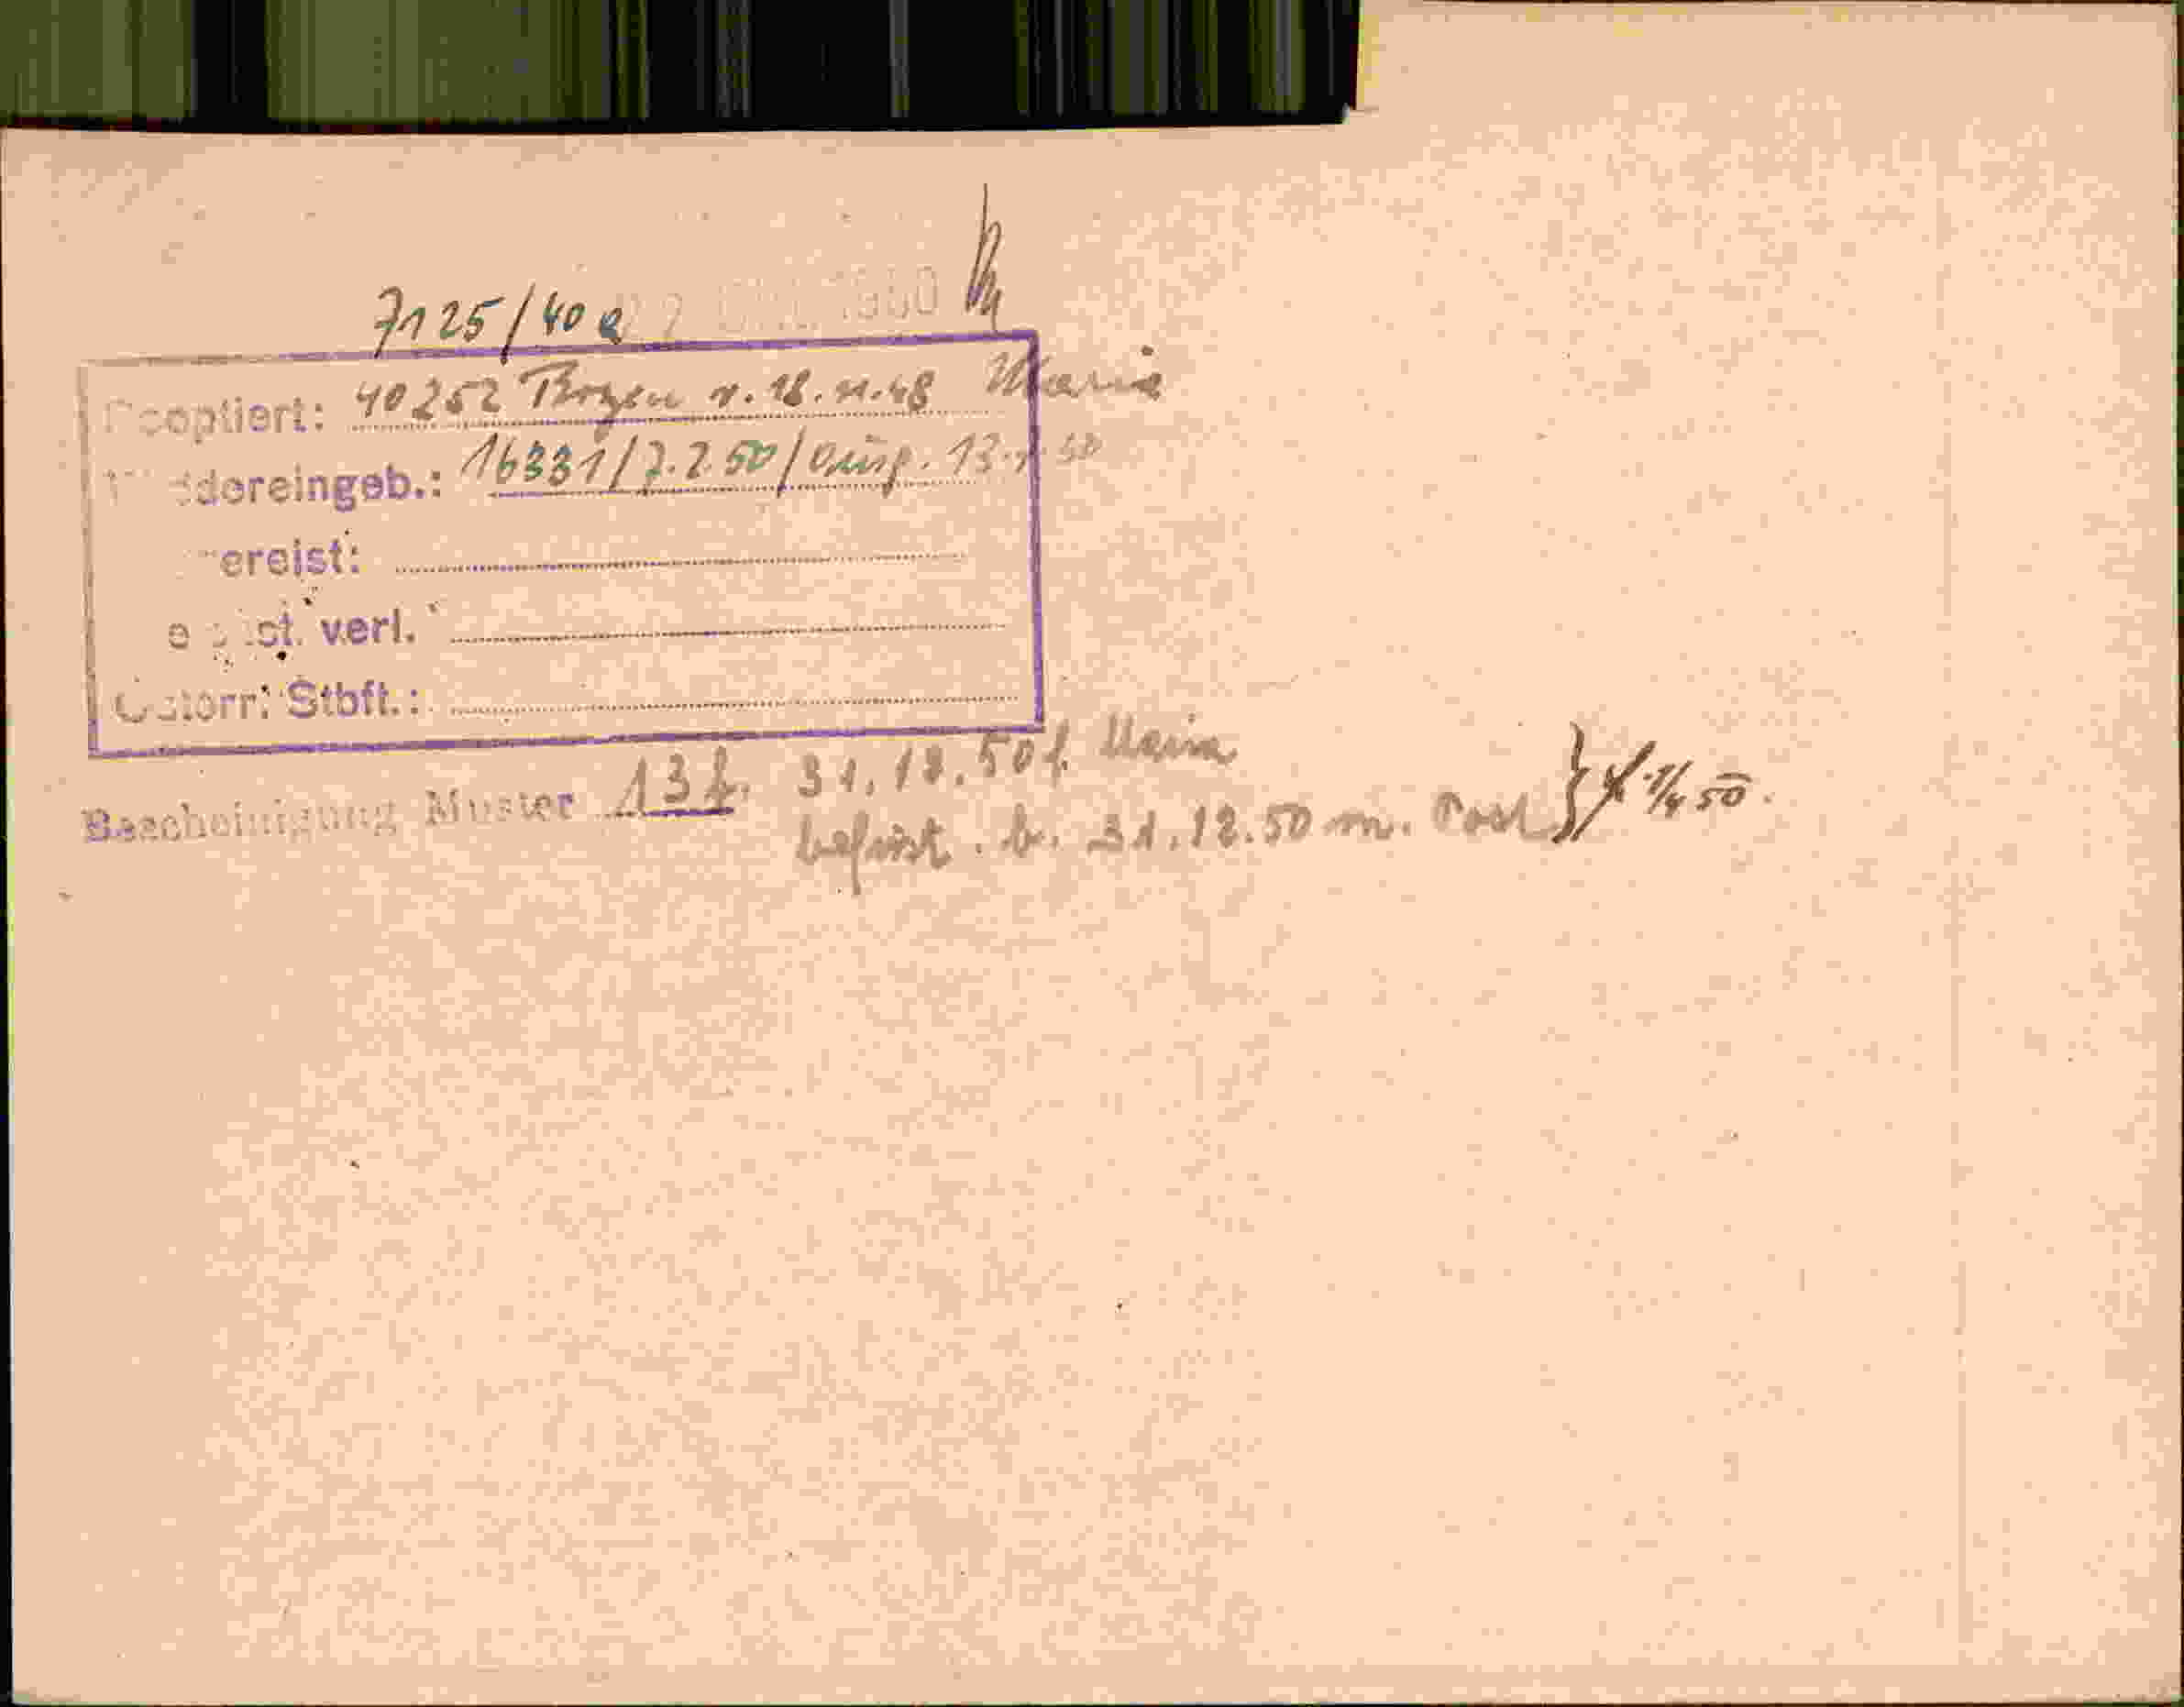 7125/40 e
Reoptiert: 40252 Bozen v. 18.11.48 Maria
Wiedereingeb.: 16331/7.2.50/
ereist:
verl.
Österr. Stbft.:
Bescheinigung Muster 13 f. 31.12.50 f. Maria
befrist. b. 31.12.50 m. Post } 50.